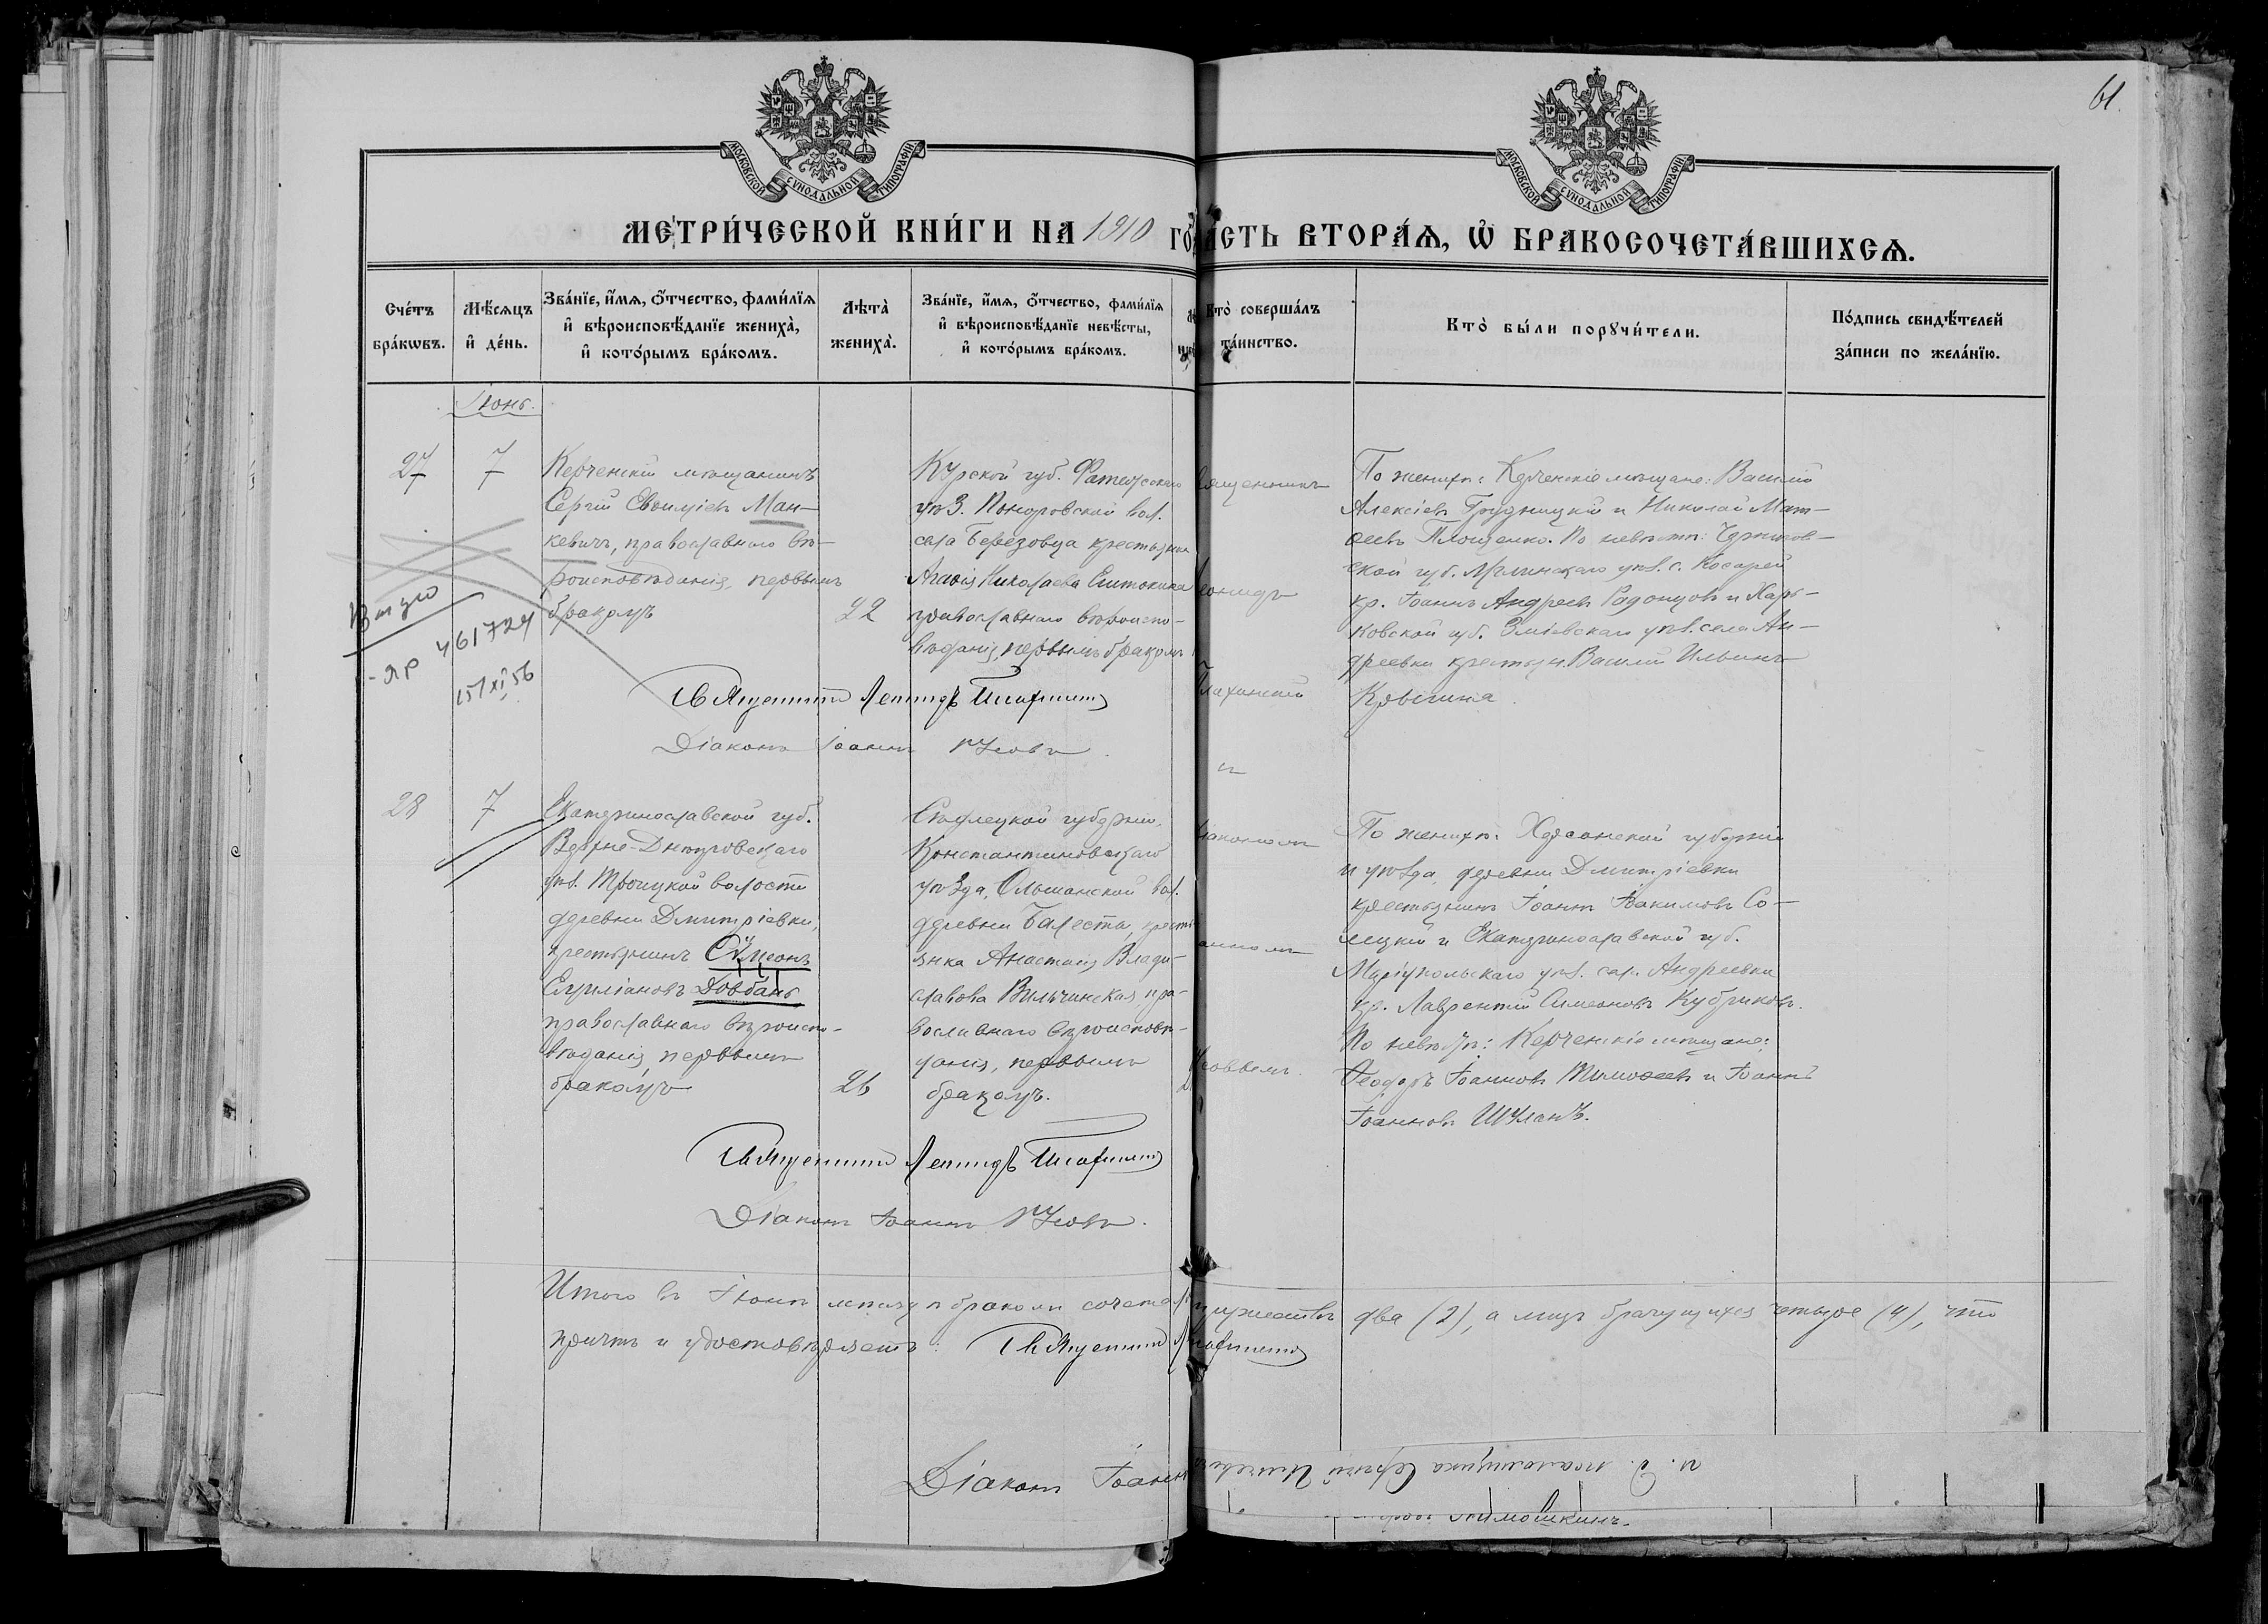 61.
МОСКОВСКОЙ СѴНОДАЛЬНОЙ ТИПОГРАФІИ
МОСКОВСКОЙ СѴНОДАЛЬНОЙ ТИПОГРАФІИ
МЕТРИ́ЧЕСКОЙ КНИ́ГИ НА 1910 ГО
АСТЬ ВТОРА́Я, Ѽ БРАКОСОЧЕТА́ВШИХСЯ.
Сче́тъ бра́кωвъ.
Мѣ́сяцъ и҆ де́нь.
Зва́нїе, и҆́мя, ѻ҆́тчество, фами́лїя и҆ вѣроисповѣ́данїе жениха̀, и҆ кото́рымъ бра́комъ.
Лѣта̀ жениха̀.
Зва́нїе, и҆́мя, ѻ҆́тчество, фами́лїя и҆ вѣроисповѣ́данїе невѣ́сты, и҆ кото́рымъ бра́комъ.
Кто̀ соверша́лъ та́инство.
Кто̀ бы́ли порꙋчи́тели.
По́дпись свидѣ́телей за́писи по жела́нїю.
Іюнь.
27
7
Керченскій мѣщанинъ
Сергій Евѳиміевъ Ман-
кевичъ, православнаго вѣ-
роисповѣданія, первымъ
бракомъ
22
Курской губ. Фатежскаго
уѣз. Поныровской вол.
села Березовца крестьянка
Агаѳія Николаева
православнаго вѣроиспо-
вѣданія, первымъ бракомъ
Священникъ Леонидъ
Діаконъ Іоаннъ Усовъ.
461724
15/XI 56
По женихѣ: Керченскіе мѣщане: Василій
Алексіевъ Грудницкій и Николай Мат-
ѳеевъ Площенко. По невѣстѣ: Чернигов-
ской губ. Мглинскаго уѣз. с. Косарей
кр. Іоаннъ Андреевъ Радонцовъ и Харь-
ковской губ. Зміевскаго уѣз. села Ан-
дреевки крестьян. Василій Ильинъ
28
7
Екатеринославской губ.
Верхне-Днѣпровскаго
уѣз. Троицкой волости
деревни Дмитріевки,
крестьянинъ Сѵмеонъ
Емиліановъ Довбань
православнаго вѣроиспо-
вѣданія, первымъ
бракомъ
26
Сѣдлецкой губерніи,
Константиновскаго
уѣзда, Ольшанской вол.
деревни Балеста, кресть
янка Анастасія Влади-
славова Вильчинская, пра-
вославнаго вѣроисповѣ-
данія, первымъ
бракомъ.
и
діакономъ
Усовымъ.
По женихѣ: Херсонской губерніи
и уѣзда, деревни Дмитріевки
крестьянинъ Іоаннъ Іоакимовъ Со-
лецкій и Екатеринославской губ.
Маріупольскаго уѣз. сел. Андреевки
кр. Лаврентій Симеоновъ Кубриковъ.
По невѣстѣ: Керченскіе мѣщане:
Ѳеодоръ Іоанновъ Тимоѳеевъ и Іоаннъ
Іоанновъ Шуланъ.
Священникъ Леонидъ
Діаконъ Іоаннъ Усовъ.
Итого въ Іюнѣ мѣсяцѣ бракомъ сочета
супружествъ два (2), а лицъ брачущихся четыре (4), что
причтъ и удостовѣряетъ: Священникъ
Діаконъ Іоаннъ
и. д. псаломщика Сергій
Тимошкинъ.